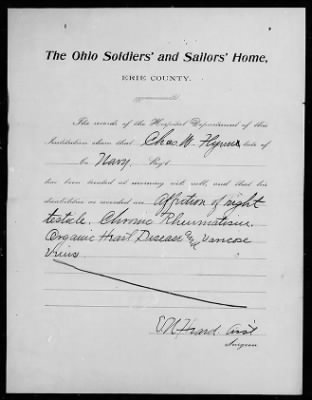 The Ohio Soldiers' and Sailors' Home,
ERIE COUNTY.
The records of the Hospital Department of this
Institution show that Chas. W. late of
Co. Navy Reg't
has been treated at morning sick call, and that his
disabilities as recorded are Affection of right
testicle. Chronic Rheumatism.
Organic Heart Disease and Varicose
Veins
Heard Ass't
Surgeon